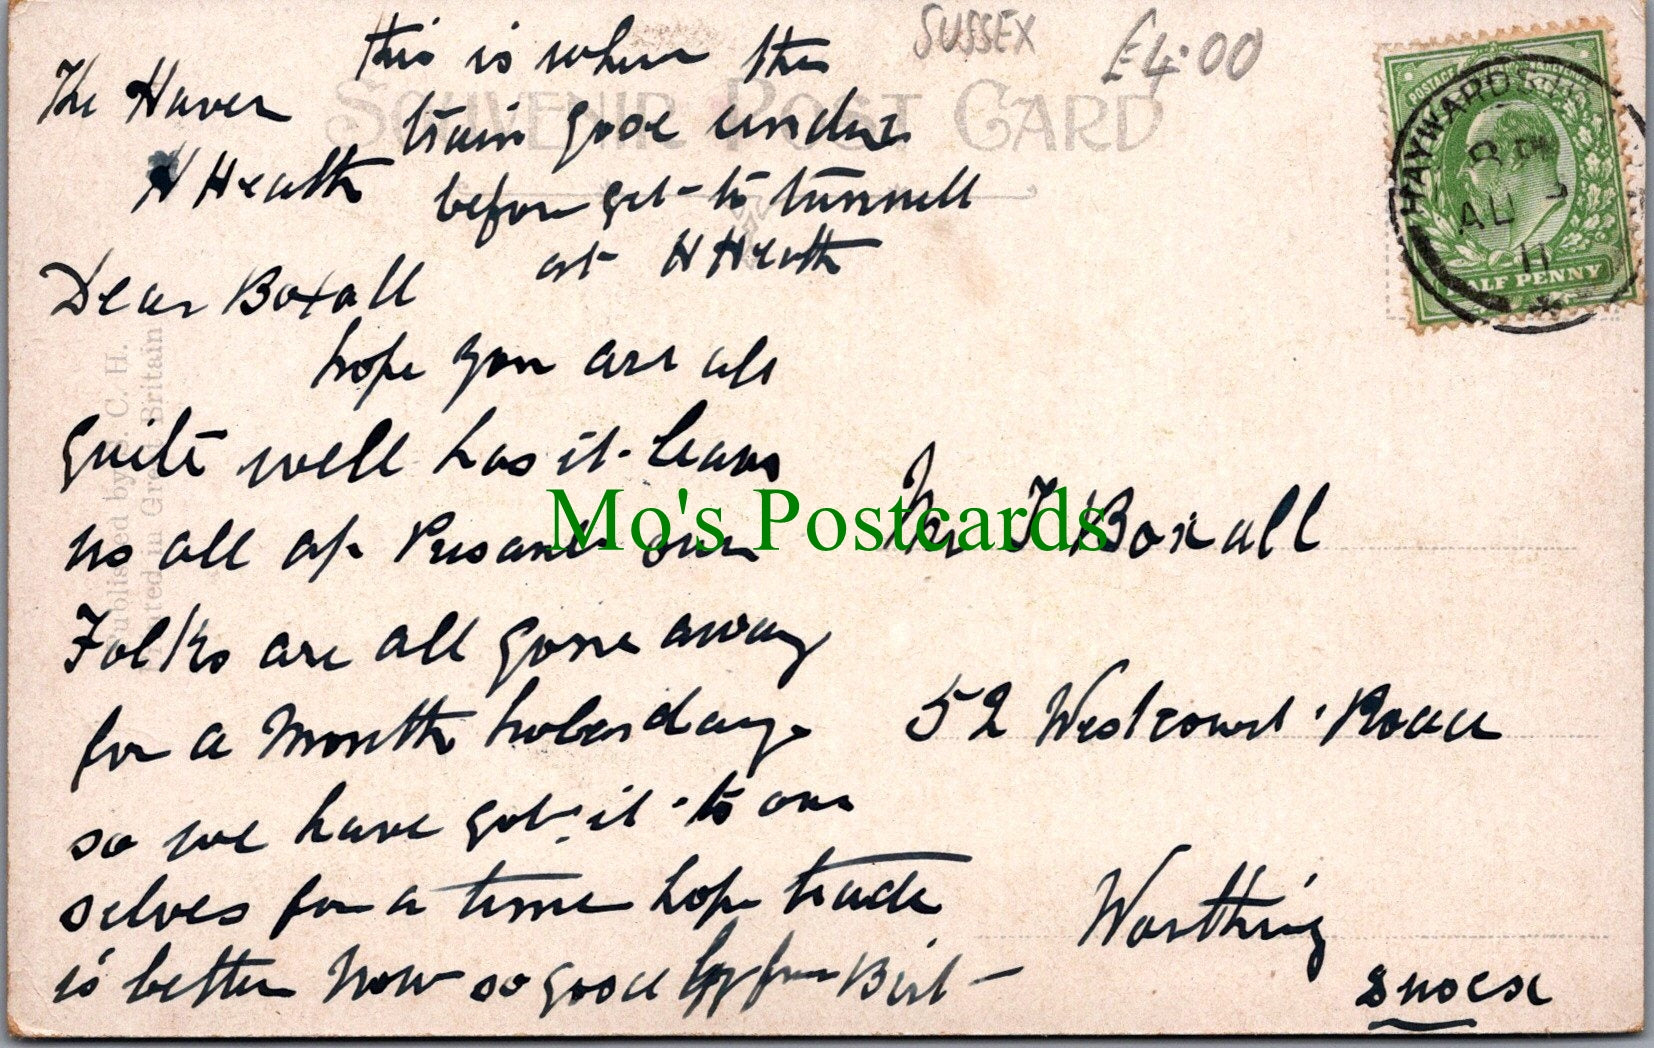 SUSSEX
£4.00
SOUVENIR POST CARD
this is wher the
train gose under
before get to tunnell
at H Heath
The Haven
H Heath
Dear Boxall
hope you are all
quite well has it leaves
us all at Presant our
Folks are all gone away
for a Month
so we have got it to our
selves for a time hope trade
is better now so good by from Bert
Mr Boxall
52 Westcourt Road
Worthing
Sussex
Published by S. C. H.
Printed in Great Britain
HAYWARDS
8 PM
AU
11
POSTAGE
HALF PENNY
Mo's Postcards